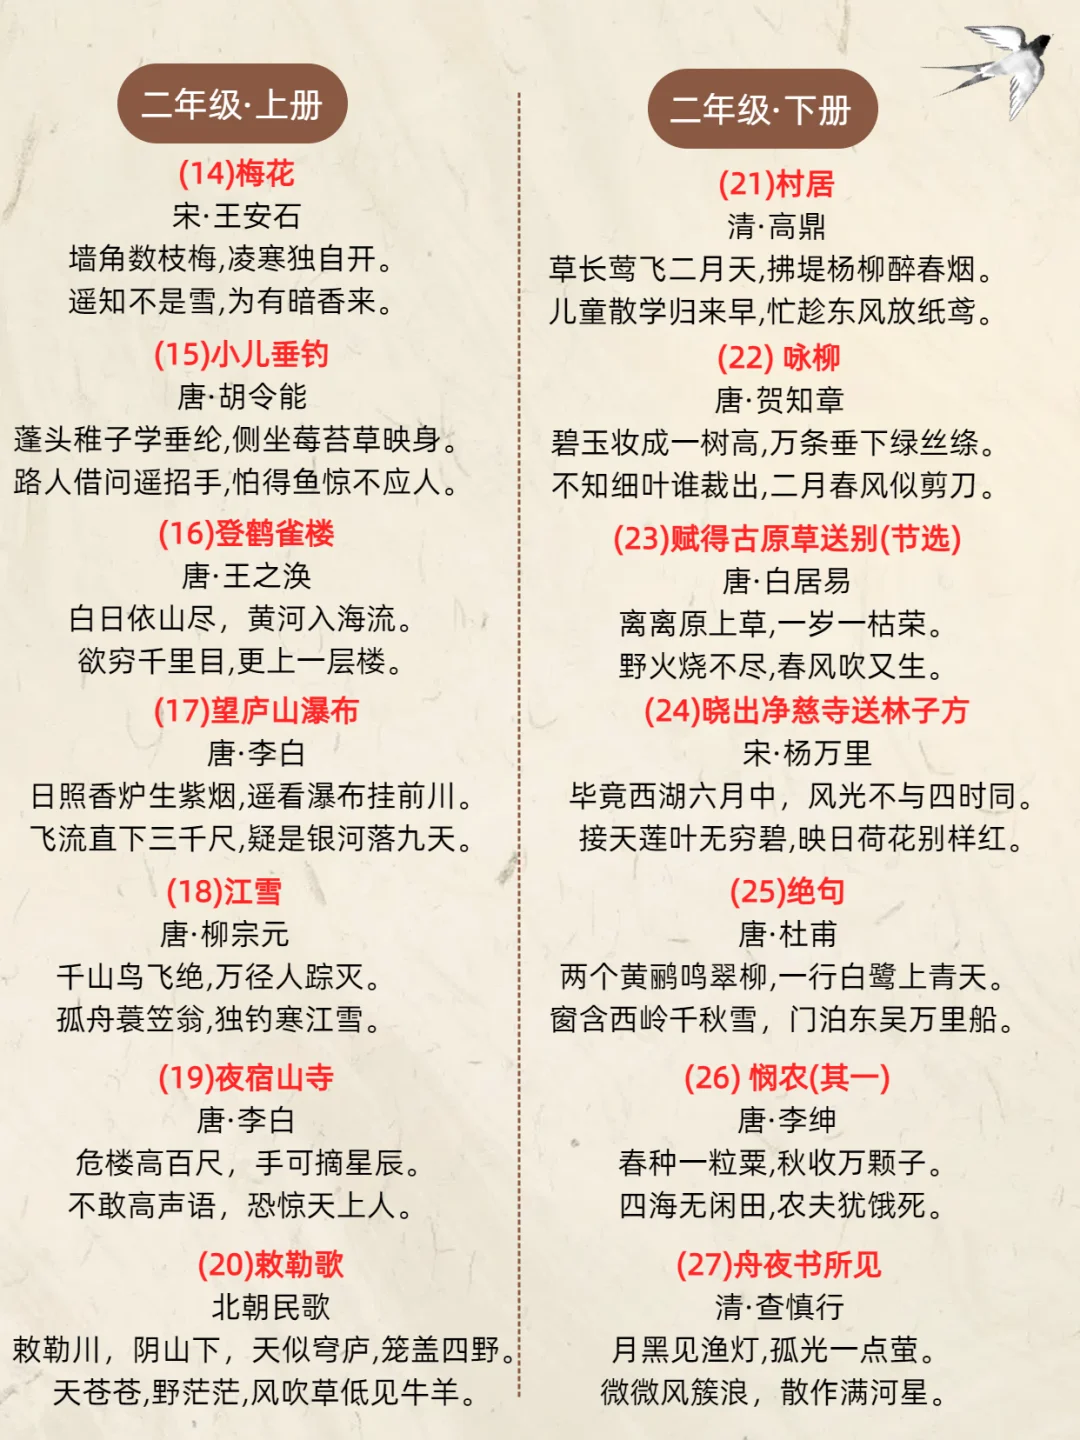 二年级·上册
(14)梅花
宋·王安石
墙角数枝梅,凌寒独自开。
遥知不是雪,为有暗香来。
(15)小儿垂钓
唐·胡令能
蓬头稚子学垂纶,侧坐莓苔草映身。
路人借问遥招手,怕得鱼惊不应人。
(16)登鹤雀楼
唐·王之涣
白日依山尽，黄河入海流。
欲穷千里目,更上一层楼。
(17)望庐山瀑布
唐·李白
日照香炉生紫烟,遥看瀑布挂前川。
飞流直下三千尺,疑是银河落九天。
(18)江雪
唐·柳宗元
千山鸟飞绝,万径人踪灭。
孤舟蓑笠翁,独钓寒江雪。
(19)夜宿山寺
唐·李白
危楼高百尺，手可摘星辰。
不敢高声语，恐惊天上人。
(20)敕勒歌
北朝民歌
敕勒川，阴山下，天似穹庐,笼盖四野。
天苍苍,野茫茫,风吹草低见牛羊。
二年级·下册
(21)村居
清·高鼎
草长莺飞二月天,拂堤杨柳醉春烟。
儿童散学归来早,忙趁东风放纸鸢。
(22) 咏柳
唐·贺知章
碧玉妆成一树高,万条垂下绿丝绦。
不知细叶谁裁出,二月春风似剪刀。
(23)赋得古原草送别(节选)
唐·白居易
离离原上草,一岁一枯荣。
野火烧不尽,春风吹又生。
(24)晓出净慈寺送林子方
宋·杨万里
毕竟西湖六月中，风光不与四时同。
接天莲叶无穷碧,映日荷花别样红。
(25)绝句
唐·杜甫
两个黄鹂鸣翠柳,一行白鹭上青天。
窗含西岭千秋雪，门泊东吴万里船。
(26) 悯农(其一)
唐·李绅
春种一粒粟,秋收万颗子。
四海无闲田,农夫犹饿死。
(27)舟夜书所见
清·查慎行
月黑见渔灯,孤光一点萤。
微微风簇浪，散作满河星。